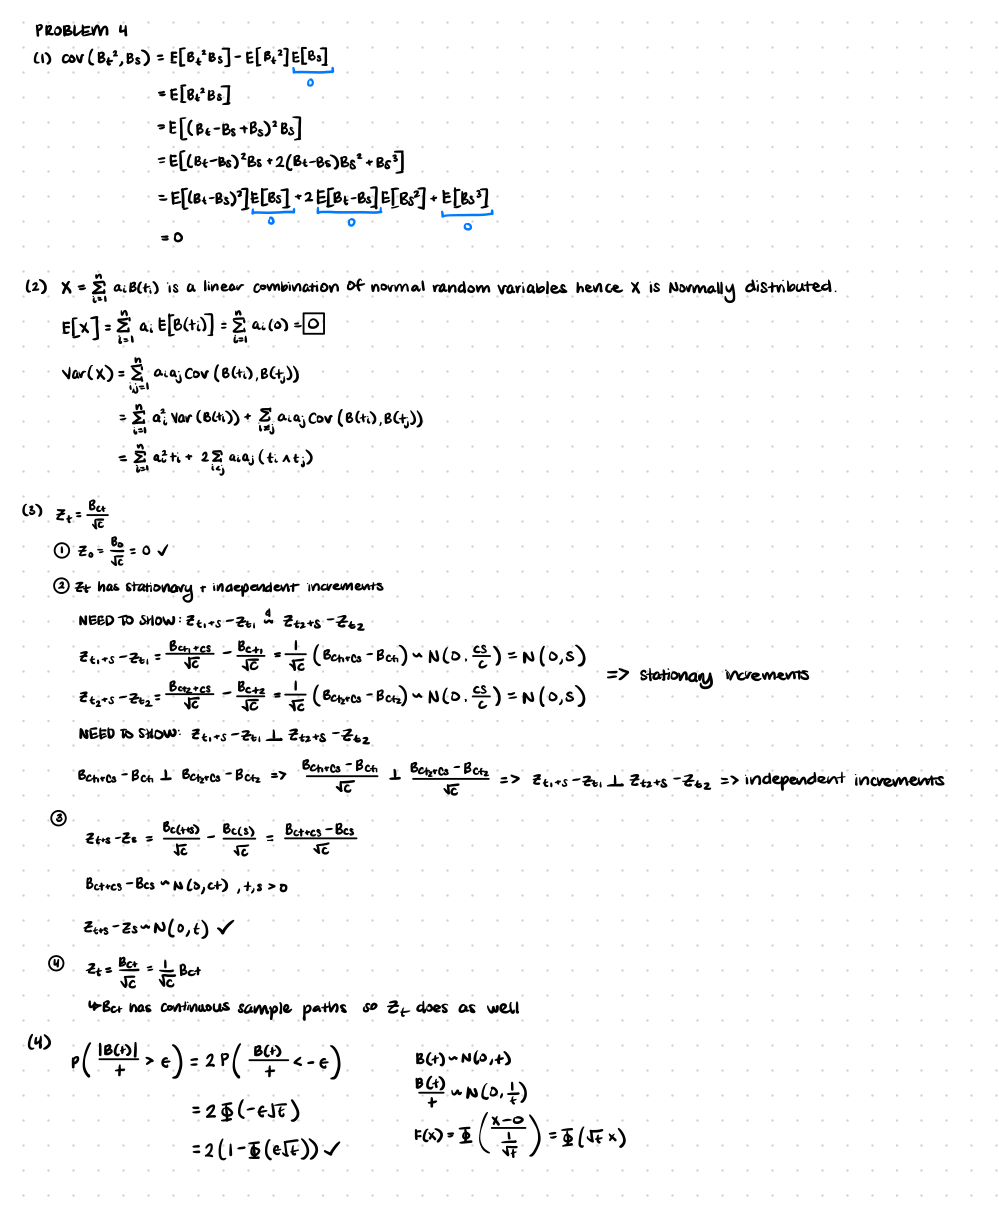 PROBLEM 4
(1) cov(B_t², B_s) = E[B_t² B_s] - E[B_t²] E[B_s]
0
= E[B_t² B_s]
= E[(B_t - B_s + B_s)² B_s]
= E[(B_t - B_s)² B_s + 2(B_t - B_s)B_s² + B_s³]
= E[(B_t - B_s)²] E[B_s] + 2 E[B_t - B_s] E[B_s²] + E[B_s³]
0 0 0
= 0
(2) X = Σ_{i=1}^n a_i B(t_i) is a linear combination of normal random variables hence X is Normally distributed.
E[X] = Σ_{i=1}^n a_i E[B(t_i)] = Σ_{i=1}^n a_i(0) = 0
Var(X) = Σ_{i,j=1}^n a_i a_j Cov(B(t_i), B(t_j))
= Σ_{i=1}^n a_i² Var(B(t_i)) + Σ_{i≠j} a_i a_j Cov(B(t_i), B(t_j))
= Σ_{i=1}^n a_i² t_i + 2 Σ_{i<j} a_i a_j (t_i ∧ t_j)
(3) Z_t = B_ct/√c
① Z_0 = B_0/√c = 0 ✓
② Z_t has stationary + independent increments
NEED TO SHOW: Z_{t1+s} - Z_{t1} ~^d Z_{t2+s} - Z_{t2}
Z_{t1+s} - Z_{t1} = B_{ct1+cs}/√c - B_{ct1}/√c = 1/√c (B_{ct1+cs} - B_{ct1}) ~ N(0, cs/c) = N(0,s)
=> stationary increments
Z_{t2+s} - Z_{t2} = B_{ct2+cs}/√c - B_{ct2}/√c = 1/√c (B_{ct2+cs} - B_{ct2}) ~ N(0, cs/c) = N(0,s)
NEED TO SHOW: Z_{t1+s} - Z_{t1} ⊥ Z_{t2+s} - Z_{t2}
B_{ct1+cs} - B_{ct1} ⊥ B_{ct2+cs} - B_{ct2} => (B_{ct1+cs} - B_{ct1})/√c ⊥ (B_{ct2+cs} - B_{ct2})/√c => Z_{t1+s} - Z_{t1} ⊥ Z_{t2+s} - Z_{t2} => independent increments
③
Z_{t+s} - Z_s = B_{c(t+s)}/√c - B_{c(s)}/√c = (B_{ct+cs} - B_{cs})/√c
B_{ct+cs} - B_{cs} ~ N(0, ct), t,s > 0
Z_{t+s} - Z_s ~ N(0, t) ✓
④ Z_t = B_ct/√c = 1/√c B_ct
↳ B_ct has continuous sample paths so Z_t does as well
(4) P(|B(t)|/t > ϵ) = 2 P(B(t)/t < -ϵ)
= 2 Φ(-ϵ√t)
= 2(1 - Φ(ϵ√t)) ✓
B(t) ~ N(0, t)
B(t)/t ~ N(0, 1/t)
F(x) = Φ((x-0)/(1/√t)) = Φ(√t x)